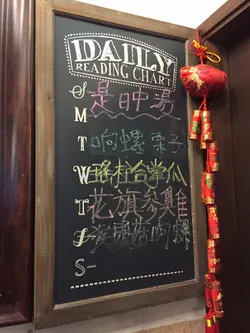 DAILY
READING CHART
S 是日中湯
M
T 响螺栗子
W 瑤柱合掌瓜
T 花旗參雞
S